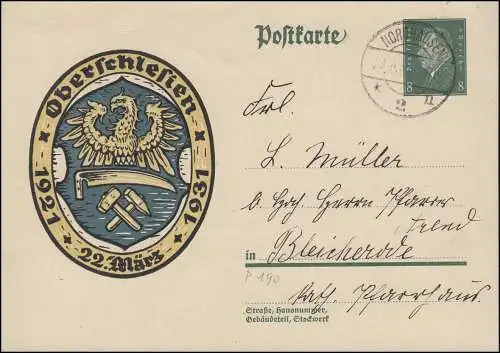 Oberschlesien
1921 1931
22. März
Postkarte
NORDHAUSEN
2 n
8 8
Frl.
L. Müller
b. Hoch. Herrn Pfarrer
in Bleicherode
P 190
Kath. Pfarrhaus.
Straße, Hausnummer,
Gebäudeteil, Stockwerk